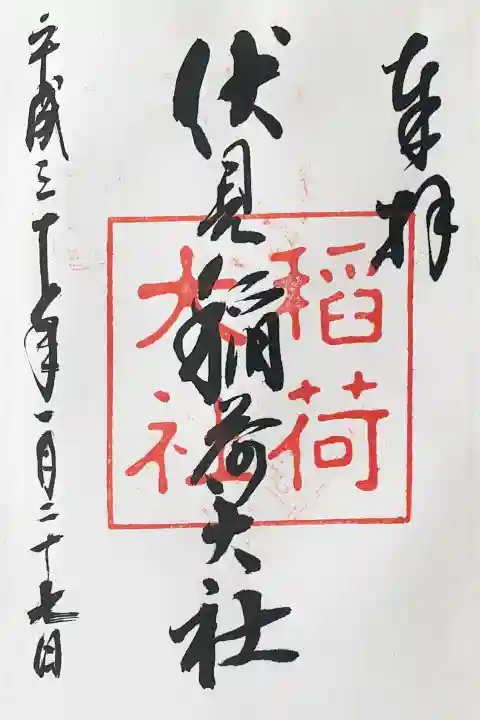 奉拝
伏見稲荷大社
稲荷
大社
平成三十年一月二十七日